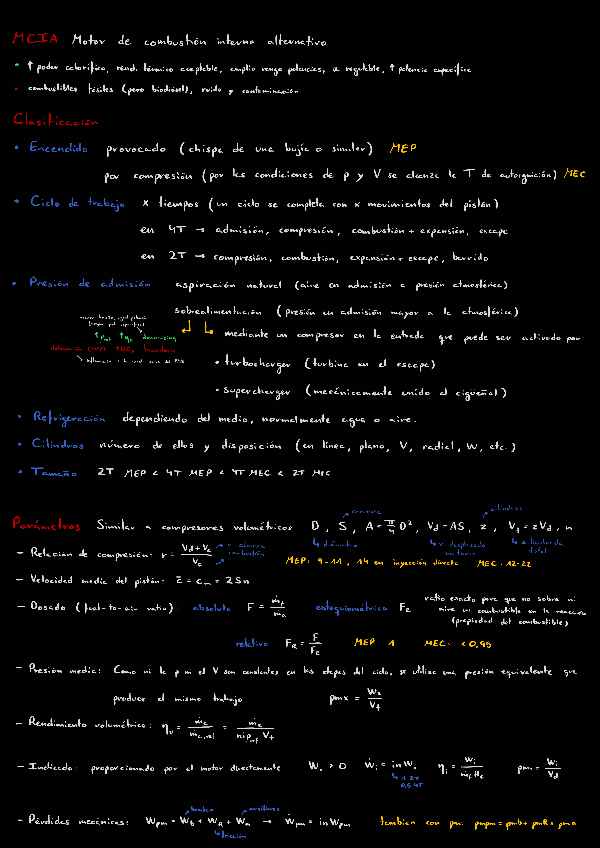 MCIA Motor de combustión interna alternativo
• ↑ poder calorífico, rend. térmico aceptable, amplio rango potencias, α regulable, ↑ potencia específica
• combustibles fósiles (pero biodiésel), ruido y contaminación
Clasificación
• Encendido provocado (chispa de una bujía o similar) MEP
por compresión (por las condiciones de p y V se alcanza la T de autoignición) MEC
• Ciclo de trabajo x tiempos (un ciclo se completa con x movimientos del pistón)
en 4T → admisión, compresión, combustión + expansión, escape
en 2T → compresión, combustión, expansión + escape, barrido
• Presión de admisión aspiración natural (aire en admisión a presión atmosférica)
sobrealimentación (presión en admisión mayor a la atmosférica)
mediante un compresor en la entrada que puede ser activado por
• turbocharger (turbina en el escape)
• supercharger (mecánicamente unido al cigüeñal)
• Refrigeración dependiendo del medio, normalmente agua o aire.
• Cilindros número de ellos y disposición (en línea, plano, V, radial, W, etc.)
• Tamaño 2T MEP < 4T MEP < 4T MEC < 2T MEC
Parámetros Similar a compresores volumétricos D, S, A = π/4 D², Vd = AS, z, VT = zVd, n
carrera cilindros
↳ diámetro ↳ v. desplazado ↳ cilindrada total
– Relación de compresión: r = (Vd + Vc)/Vc
MEP: 9-11, 14 en inyección directa MEC: 12-22
– Velocidad media del pistón: c̄ = cm = 2Sn
– Dosado (fuel-to-air ratio): absoluto F = ṁf/ṁa estequiométrico Fe ratio exacto para que no sobre ni
aire ni combustible en la reacción
(propiedad del combustible)
relativo FR = F/Fe MEP 1 MEC: < 0,95
– Presión media: Como ni la p ni el V son constantes en las etapas del ciclo, se utiliza una presión equivalente que
produce el mismo trabajo pmx = Wx/VT
– Rendimiento volumétrico: ηv = ṁa/ṁa,ref = ṁa/(n i ρref VT)
– Indicado: proporcionado por el motor directamente Wi > 0 Ẇi = inWi ηi = Ẇi/(ṁf Hc) pmi = Wi/Vd
↳ 1 2T
0,5 4T
bombeo auxiliares
– Pérdidas mecánicas: Wpm = Wb + WR + Wa → Ẇpm = inWpm también con pm: pmpm = pmb + pmR + pma
↳ fricción